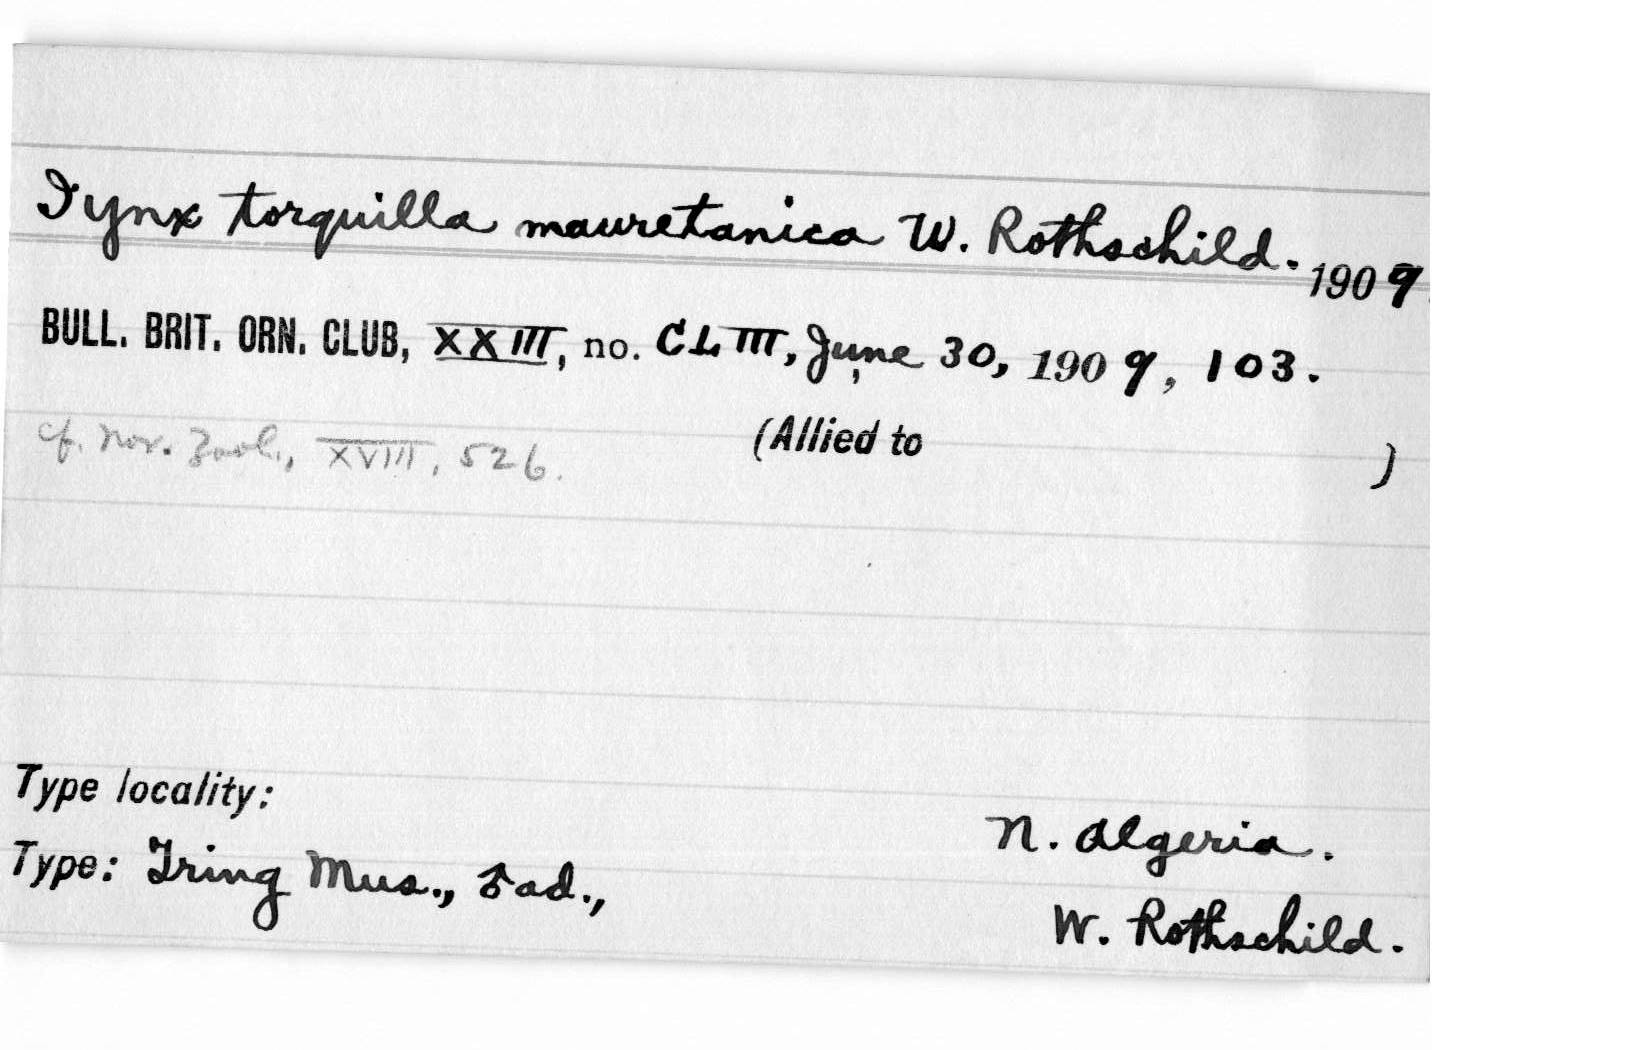 Iynx torquilla mauretanica W. Rothschild. 1909.
BULL. BRIT. ORN. CLUB, XXIII, no. CLIII, June 30, 1909, 103.
cf. Nov. Zool., XVIII, 526. (Allied to )
Type locality: N. Algeria.
Type: Tring Mus., ♂ ad., W. Rothschild.